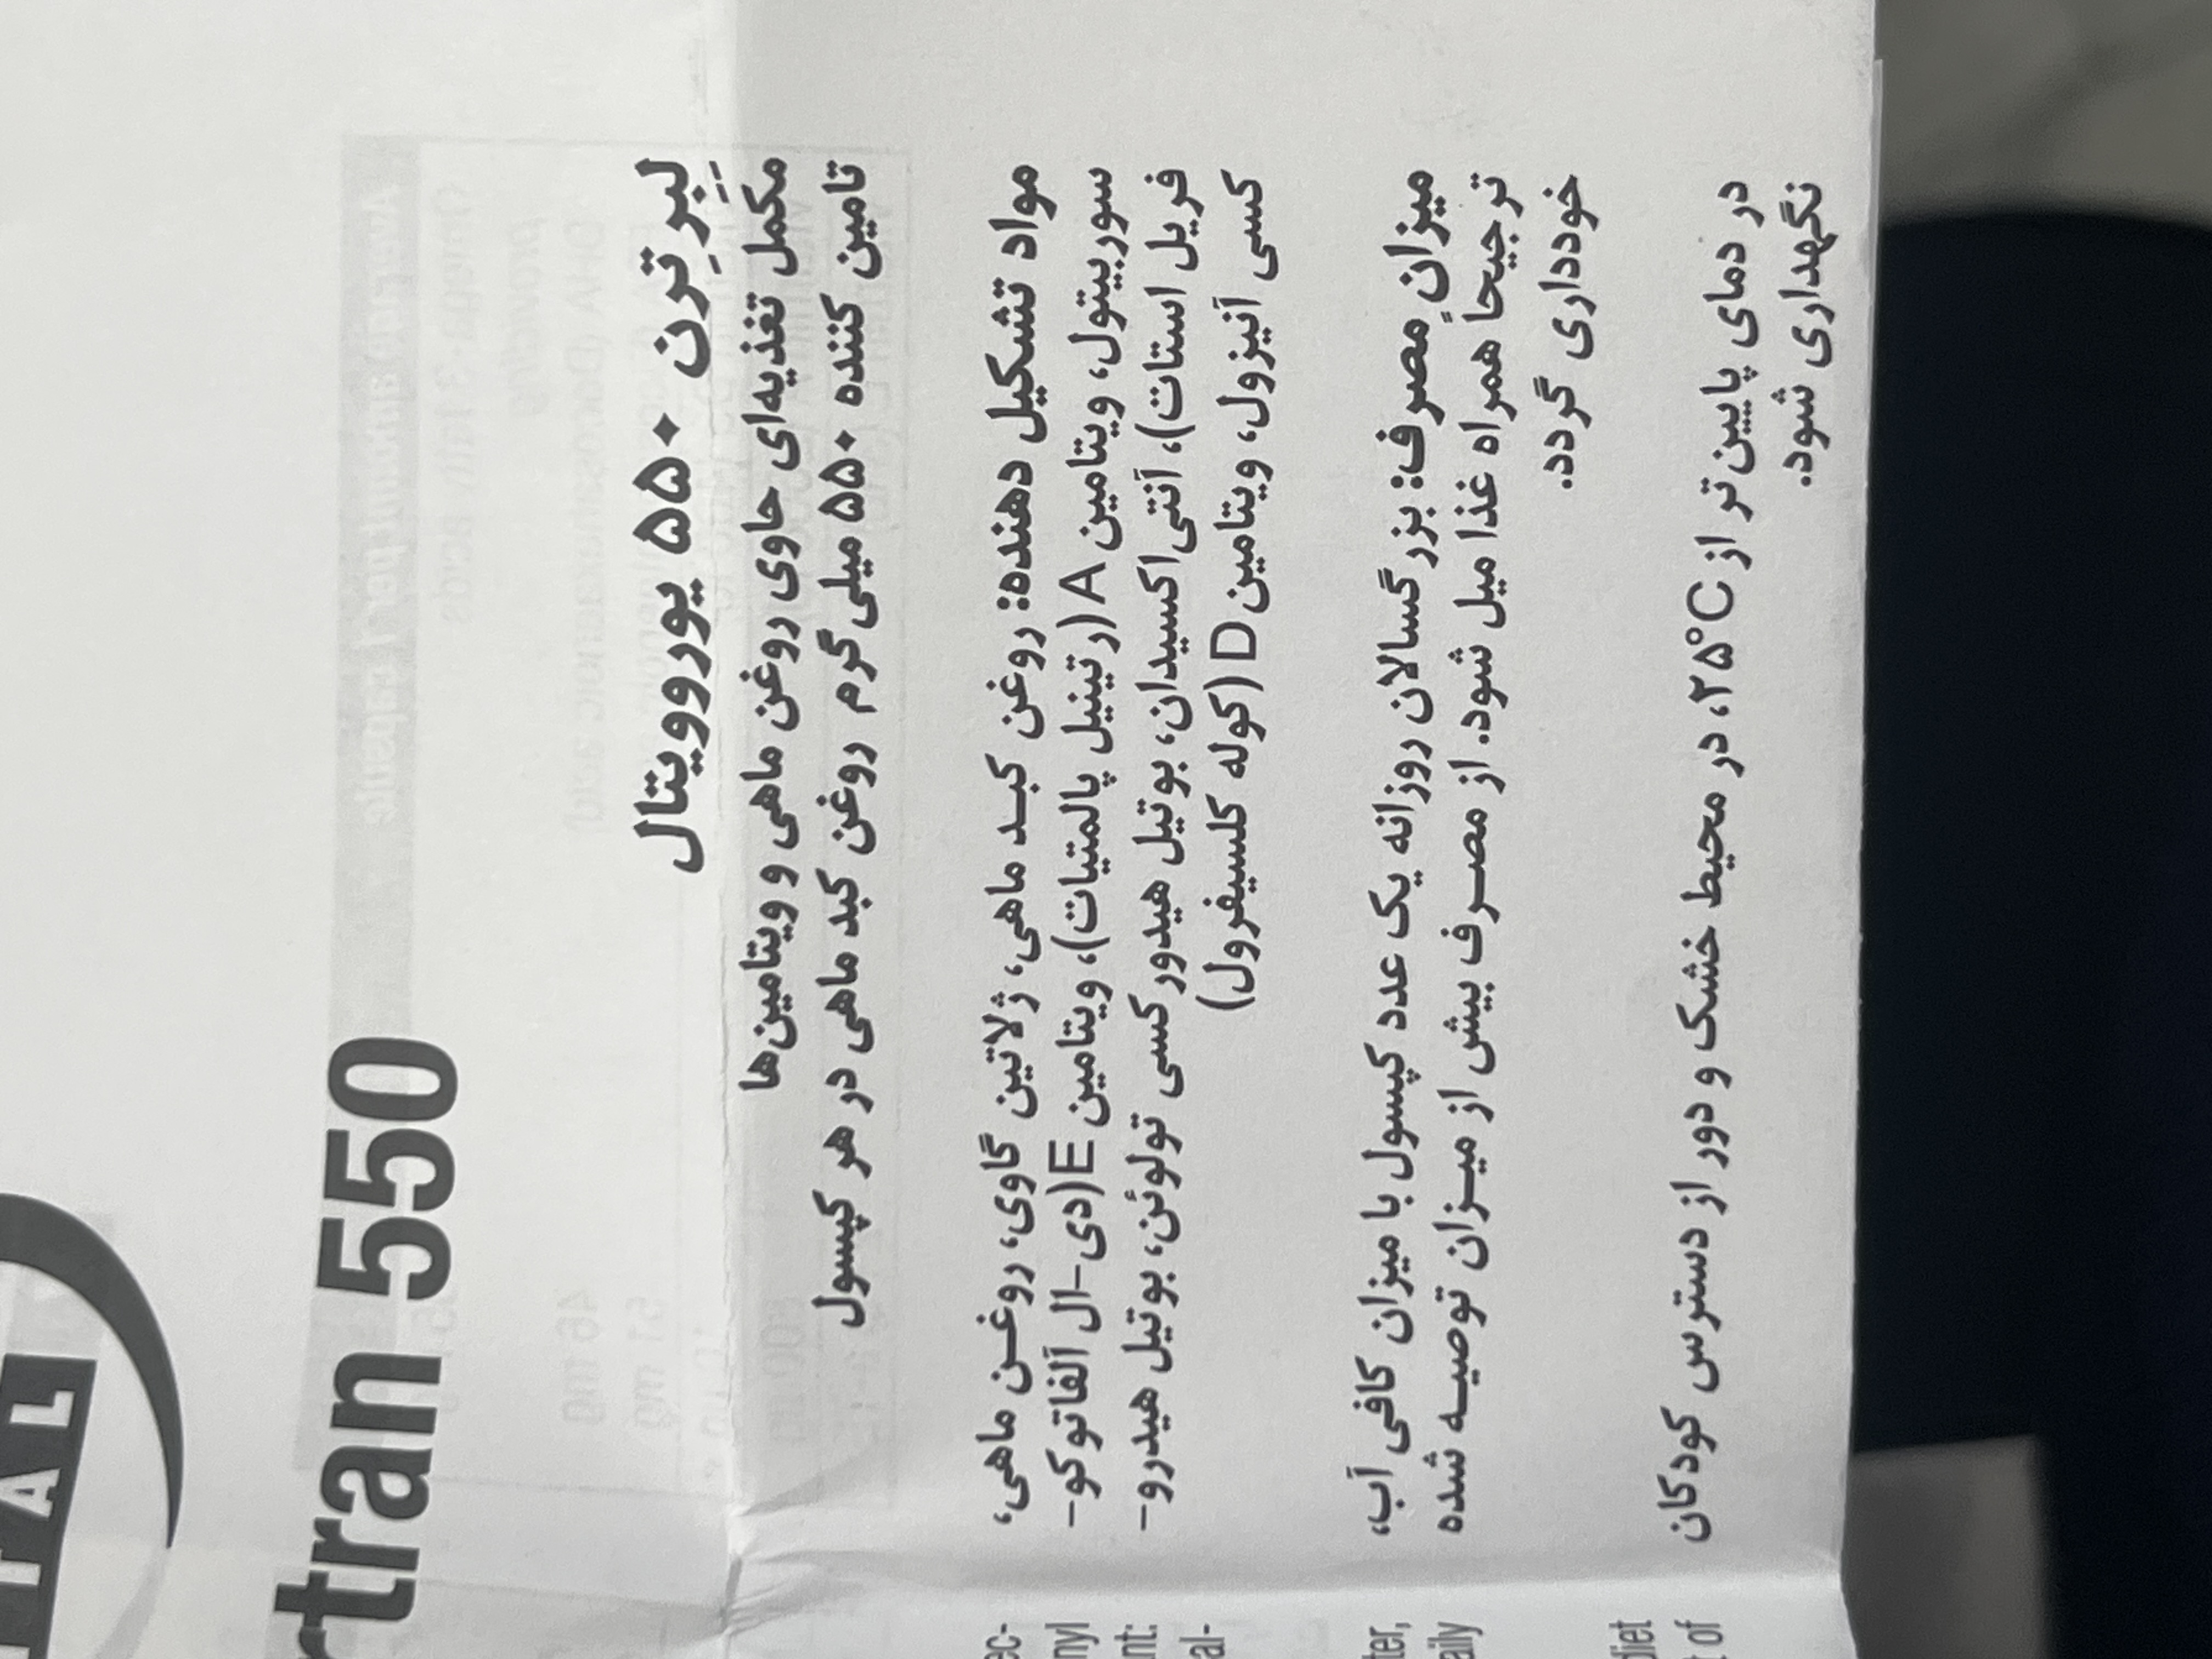 TAL
rtran 550
لیبرترن ۵۵۰ یوروویتال
مکمل تغذیه‌ای حاوی روغن ماهی و ویتامین‌ها
تامین کننده ۵۵۰ میلی‌گرم روغن کبد ماهی در هر کپسول
مواد تشکیل دهنده: روغن کبد ماهی، ژلاتین گاوی، روغن ماهی،
سوربیتول، ویتامین A (رتینیل پالمتیات)، ویتامین E (دی-ال آلفاتوکو-
فریل استات)، آنتی‌اکسیدان، بوتیل هیدورکسی تولوئن، بوتیل هیدرو-
کسی آنیزول، ویتامین D (کوله کلسیفرول)
میزان مصرف: بزرگسالان روزانه یک عدد کپسول با میزان کافی آب،
ترجیحاً همراه غذا میل شود. از مصرف بیش از میزان توصیه شده
خودداری گردد.
در دمای پایین‌تر از ۲۵°C، در محیط خشک و دور از دسترس کودکان
نگهداری شود.
ec-
nyl
nt:
al-
ter,
aily
diet
t of